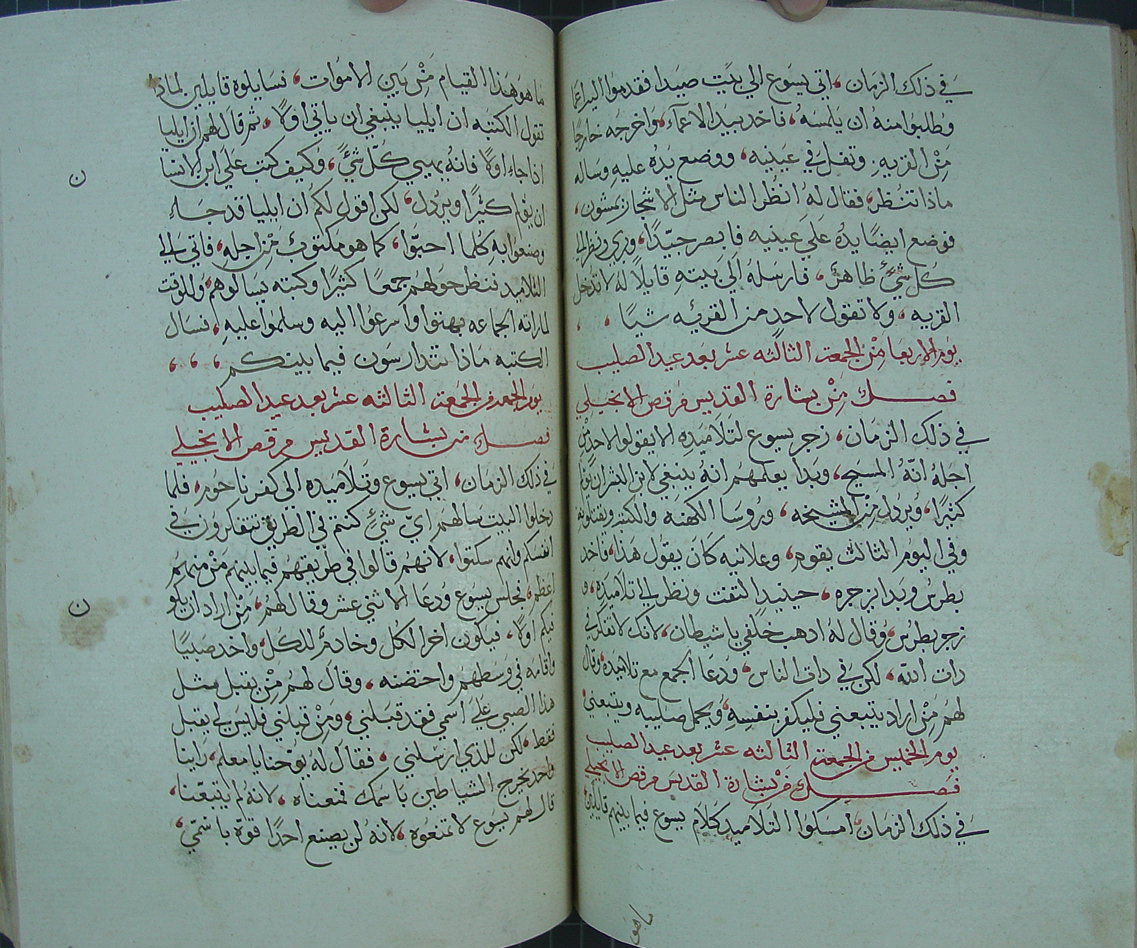 في ذلك الزمان، اتى يسوع الى بيت صيدا فقدموا اليه اعما
وطلبوا منه ان يلمسه، فاخد بيد الاعماء، واخرجه خارجا
من القريه، وتفل في عينيه، ووضع يده عليه وساله
ماذا تنظر، فقال له انظر الناس مثل الاشجار يمشون،
فوضع ايضًا يده على عينيه فابصر جيّدًا، وبري ونظر الى
كل شيٍ ظاهر، فارسله الى بيته قايلاً له لا تدخل
القريه، ولا تقول لاحد من القريه شيا
يوم الاربعا من الجمعة الثالثه عشر بعد عيد الصليب
فصل من بشارة القديس مرقص الانجيلي
في ذلك الزمان، زجر يسوع لتلاميده الا يقولوا لاحد من
اجله انه المسيح، وبدا يعلمهم انه ينبغي لابن البشر ان يولم
كثيرًا، ويردل من المشيخه، وروسا الكهنه والكتبه ويقتلونه
وفي اليوم الثالث يقوم، وعلانيه كان يقول هذا، فاخد
بطرس وبدا يزجره، حينيد التفت ونظر الى تلاميده، و
زجر بطرس، وقال له ادهب خلفي يا شيطان، لانك لا تفكر في
دات الله، لكن في دات الناس، ودعا الجمع مع تلاميده وقال
لهم من اراد يتبعني فليكفر بنفسه، ويحمل صليبه ويتبعني،
يوم الخميس من الجمعة الثالثه عشر بعد عيد الصليب
فصل من بشارة القديس مرقص الانجيلي
في ذلك الزمان، امسكوا التلاميد كلام يسوع فيما بينهم قايلين،
ما هو
ما هو هذا القيام من بين الاموات، فسايلوه قايلين لماذا
تقول الكتبه ان ايليا ينبغي ان ياتي اولاً، ثم قال لهم ان ايليا
اذا جاء اولاً فانه يهيي كل شيً، وكيف كتب على ابن الانسا
ان يولم كثيرًا ويردل، لكن اقول لكم ان ايليا قد جاء
وصنعوا به كلما احبوا، كما هو مكتوب من اجله، فاتى الى
التلاميد فنظر حولهم جمعًا كثيرًا وكتبه يسالوهم، وللوقت
لما راته الجماعه بهتوا واسرعوا اليه وسلموا عليه، فسال
الكتبه ماذا تتدارسون فيما بينكم
يوم الجمعه من الجمعة الثالثه عشر بعد عيد الصليب
فصل من بشارة القديس مرقص الانجيلي
في ذلك الزمان، اتى يسوع وتلاميده الى كفرناحوم، فلما
دخلوا البيت سالهم اي شيٍ كنتم في الطريق تتفكرون في
انفسكم وانهم سكتوا، لانهم قالوا في طريقهم فيما بينهم من منهم
اعظم، فجلس يسوع ودعا الاثني عشر وقال لهم، من اراد ان يكو
فيكم اولاً، فيكون اخر الكل وخادم للكل، واخد صبيًا
واقامه في وسطهم واحتضنه، وقال لهم من يقبل مثل
هذا الصبي على اسمي فقد قبلني، ومن قبلني فليس لي يقبل
فقط، لكن للذي ارسلني، فقال له يوحنا يا معلم، راينا
واحد يخرج الشياطين باسمك فمنعناه، لانه لم يتبعنا،
قال لهم يسوع لا تمنعوه، لانه لن يصنع احدًا قوة باسمي،
ن
ن